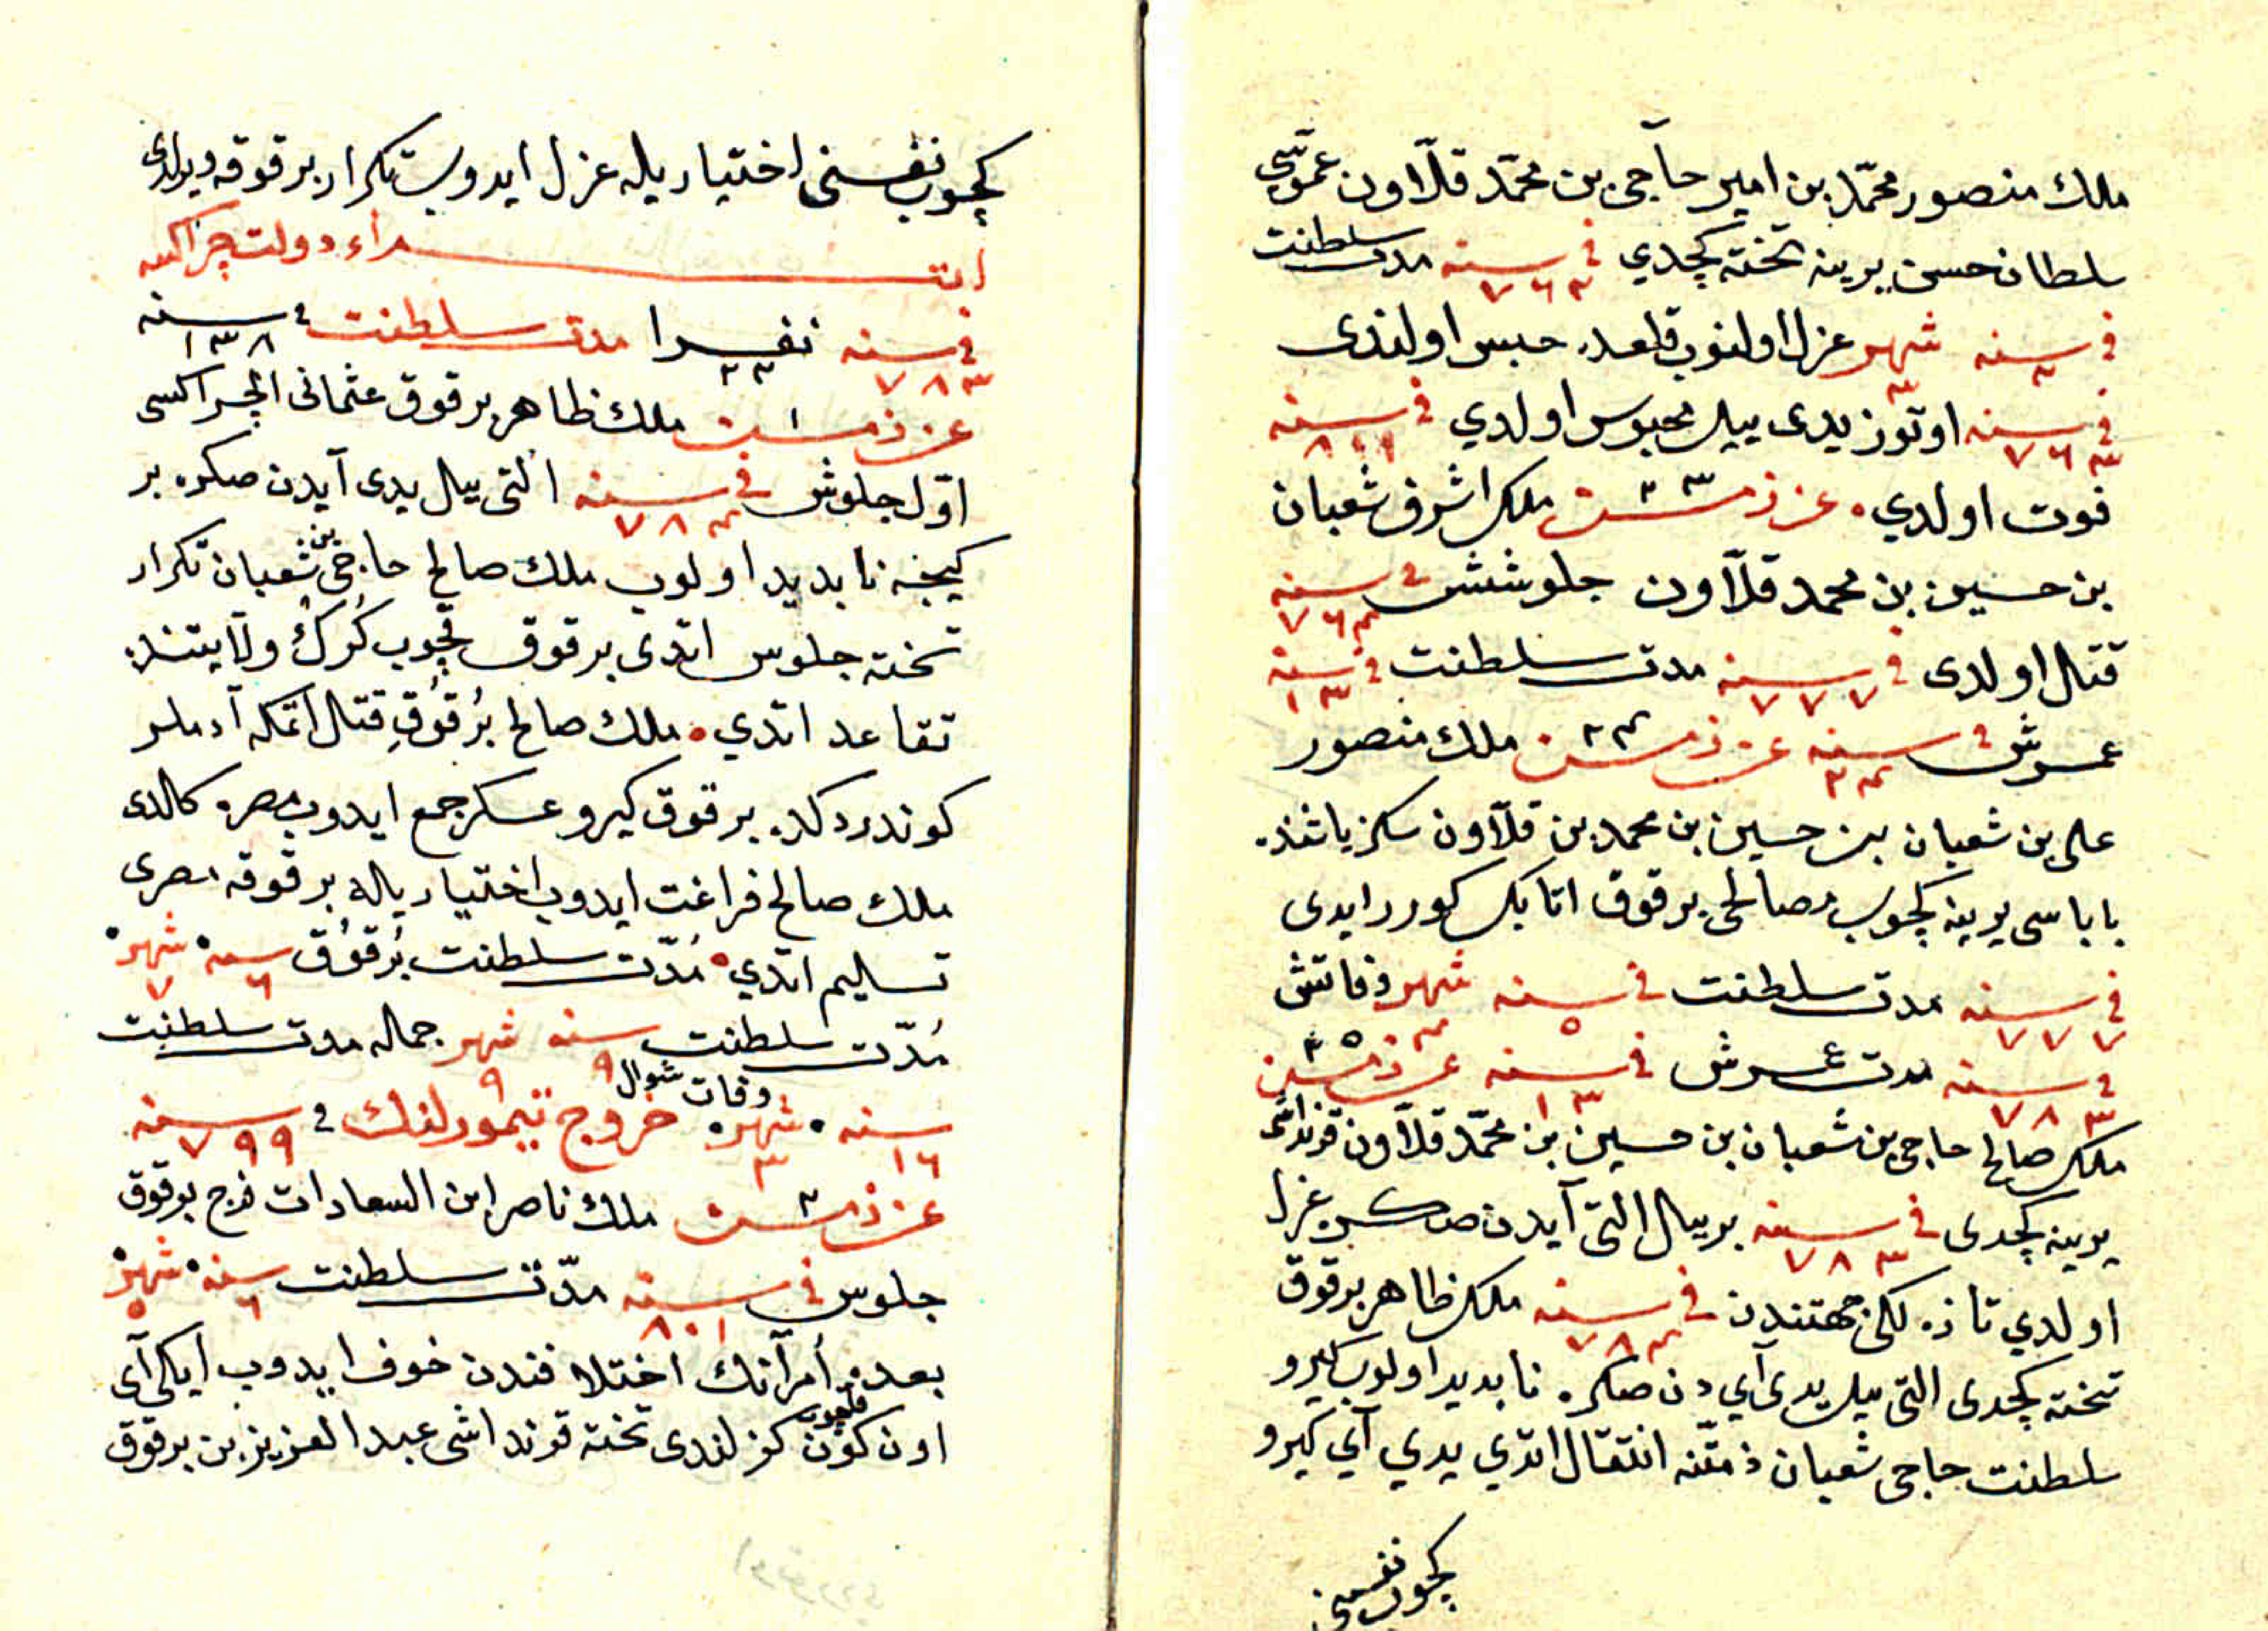 ملك منصور محمّد بن امير حاجى بن محمّد قلّاون عمّوسى
سلطان حسن يرينه تخته كچدي فى سنه ٧٦٣ مدت سلطنت
فى سنه ٢ شهر ٣ عزل اولنوب قلعه‌ده حبس اولندى
فى سنه ٧٦٣ اوتوز يدى ييل محبوس اولدي فى سنه ٨٠١
فوت اولدي عن ذمتين ٢٣ ملك اشرف شعبان
بن حسين بن محمد قلّاون جلوششى فى سنه ٧٦٤
قتال اولدى فى سنه ٧٧٧ مدت سلطنت فى سنه ١٣
عمرش فى سنه ٢٤ ٢٤ ملك منصور
على بن شعبان بن حسين بن محمد بن قلّاون سكز ياشنده
باباسى يرينه كچوب مصالحى برقوق اتابك كورر ايدى
فى سنه ٧٧٧ مدت سلطنت فى سنه ٥ شهر ٤ وفاتش
فى سنه ٧٨٣ مدت عمرش فى سنه ١٣ ٢٥
ملك صالح حاجى بن شعبان بن حسين بن محمّد قلّاون قرنداشى
يرينه كچدى فى سنه ٧٨٣ بر ييل التى آيدن صكره عزل
اولدي تازه‌لكى جهتندن فى سنه ٧٨٤ ملك ظاهر برقوق
تخته كچدى التى ييل يدى آي دن صكره نابديد اولوب كيرو
سلطنت حاجى شعبان ذمّتنه انتقال اتدي يدي آي كيرو
كچوب نفسنى
كچوب نفسنى اختيار يله عزل ايدوب تكرار برقوقه ويردى
ابتداء دولت چراكسه
فى سنه ٧٨٣ نفرا ٢٣ مدت سلطنت فى سنه ١٣٨
١ ملك ظاهر برقوق عثمانى الچراكسى
اوّل جلوش فى سنه ٧٨٤ التى ييل يدى آيدن صكره بر
كيجه نابديد اولوب ملك صالح حاجى بن شعبان تكرار
تخته جلوس اتدى برقوق قچوب كُرك ولايتنده
تقاعد اتدي ملك صالح بُرقُوقِ قتال اتمكه آدملر
كوندردكده برقوق كيرو عسكر جمع ايدوب مصره كالدى
ملك صالح فراغت ايدوب اختيار ياله برقوقه مصرى
تسليم اتدي مُدّت سلطنت بُرقُوُق سنه ٦ شهر ٧
مُدّت سلطنت سنه ٩ شهر ٩ جماله مدت سلطنت
سنه ١٦ شهر ٣ وفات شوال خروج تيمورلنك فى سنه ٧٩٩
٢ ملك ناصر ابن السعادات فرج برقوق
جلوس فى سنه ٨٠١ مدّت سلطنت سنه ٦ شهر ٥
بعده اُمرآنك اختلافندن خوف ايدوب ايكى آى
اون كون قاچوب كزلندى تخته قرنداشى عبد العزيز بن برقوق